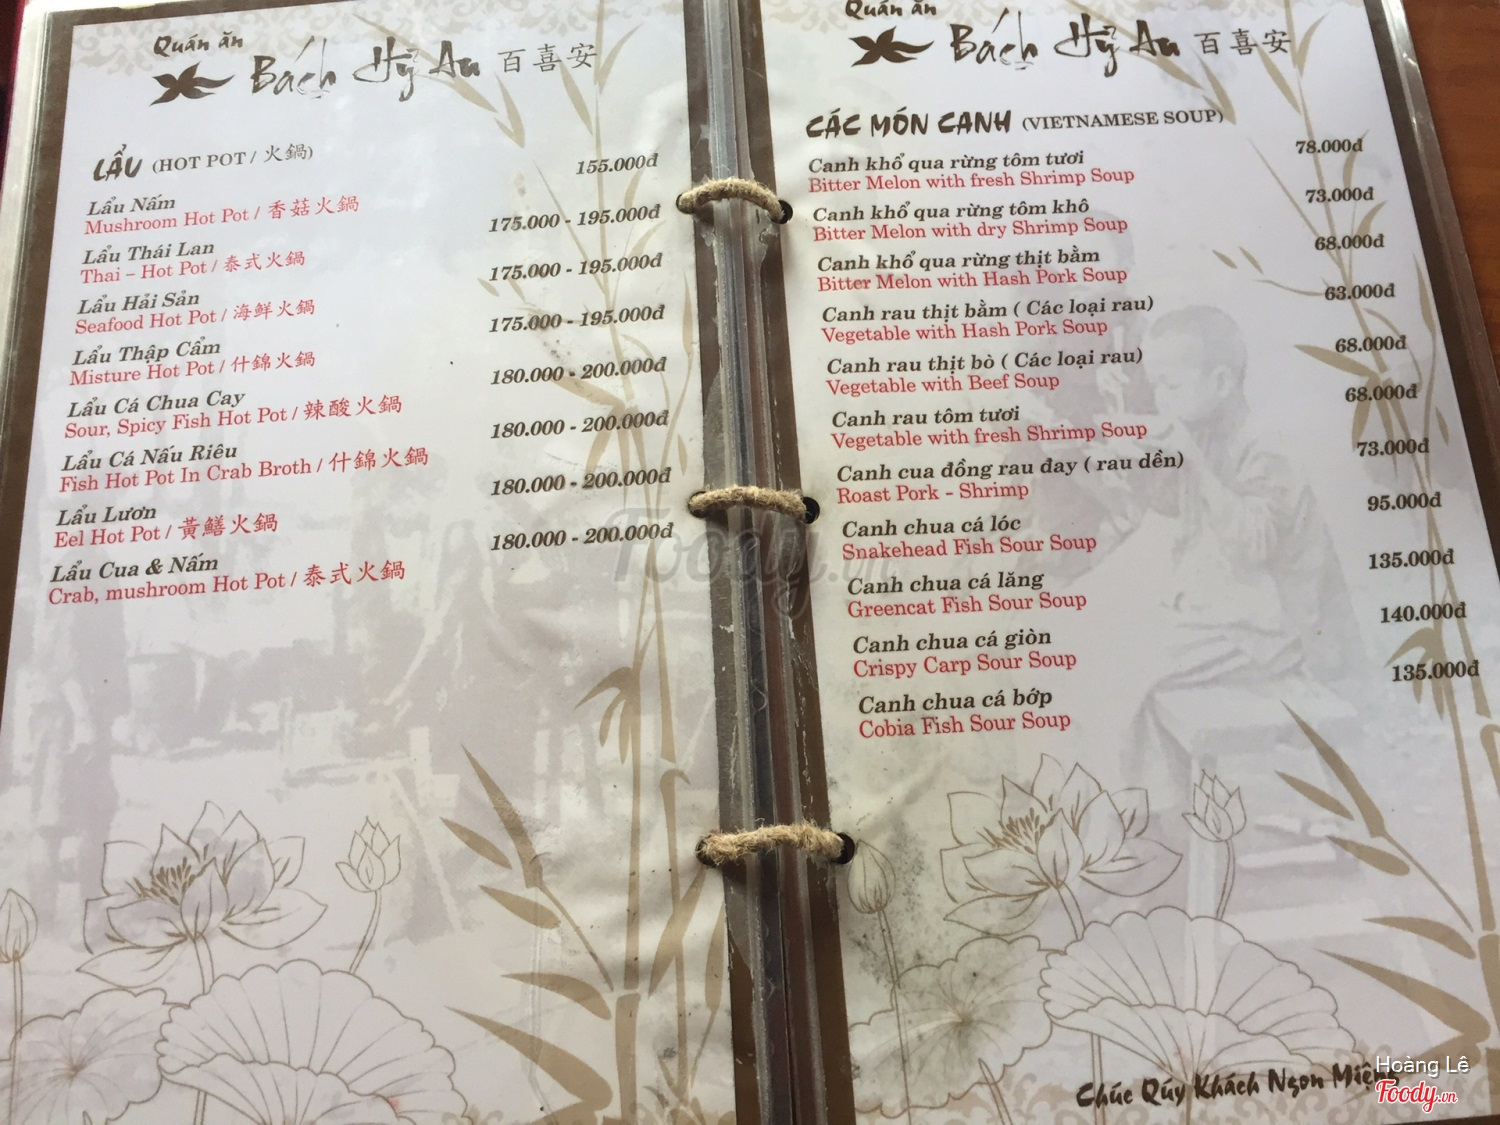 Quán ăn
Bách Hỷ An 百喜安
LẨU (HOT POT / 火鍋)
155.000đ
Lẩu Nấm
Mushroom Hot Pot / 香菇火鍋
175.000 - 195.000đ
Lẩu Thái Lan
Thai – Hot Pot / 泰式火鍋
175.000 - 195.000đ
Lẩu Hải Sản
Seafood Hot Pot / 海鮮火鍋
175.000 - 195.000đ
Lẩu Thập Cẩm
Misture Hot Pot / 什錦火鍋
180.000 - 200.000đ
Lẩu Cá Chua Cay
Sour, Spicy Fish Hot Pot / 辣酸火鍋
180.000 - 200.000đ
Lẩu Cá Nấu Riêu
Fish Hot Pot In Crab Broth / 什錦火鍋
180.000 - 200.000đ
Lẩu Lươn
Eel Hot Pot / 黃鱔火鍋
180.000 - 200.000đ
Lẩu Cua & Nấm
Crab, mushroom Hot Pot / 泰式火鍋
Quán ăn
Bách Hỷ An 百喜安
CÁC MÓN CANH (VIETNAMESE SOUP)
78.000đ
Canh khổ qua rừng tôm tươi
Bitter Melon with fresh Shrimp Soup
73.000đ
Canh khổ qua rừng tôm khô
Bitter Melon with dry Shrimp Soup
68.000đ
Canh khổ qua rừng thịt bằm
Bitter Melon with Hash Pork Soup
63.000đ
Canh rau thịt bằm ( Các loại rau)
Vegetable with Hash Pork Soup
68.000đ
Canh rau thịt bò ( Các loại rau)
Vegetable with Beef Soup
68.000đ
Canh rau tôm tươi
Vegetable with fresh Shrimp Soup
73.000đ
Canh cua đồng rau đay ( rau dền)
Roast Pork - Shrimp
95.000đ
Canh chua cá lóc
Snakehead Fish Sour Soup
135.000đ
Canh chua cá lăng
Greencat Fish Sour Soup
140.000đ
Canh chua cá giòn
Crispy Carp Sour Soup
135.000đ
Canh chua cá bớp
Cobia Fish Sour Soup
Chúc Qúy Khách Ngon Miệng
Foody.vn
Hoàng Lê
Foody.vn